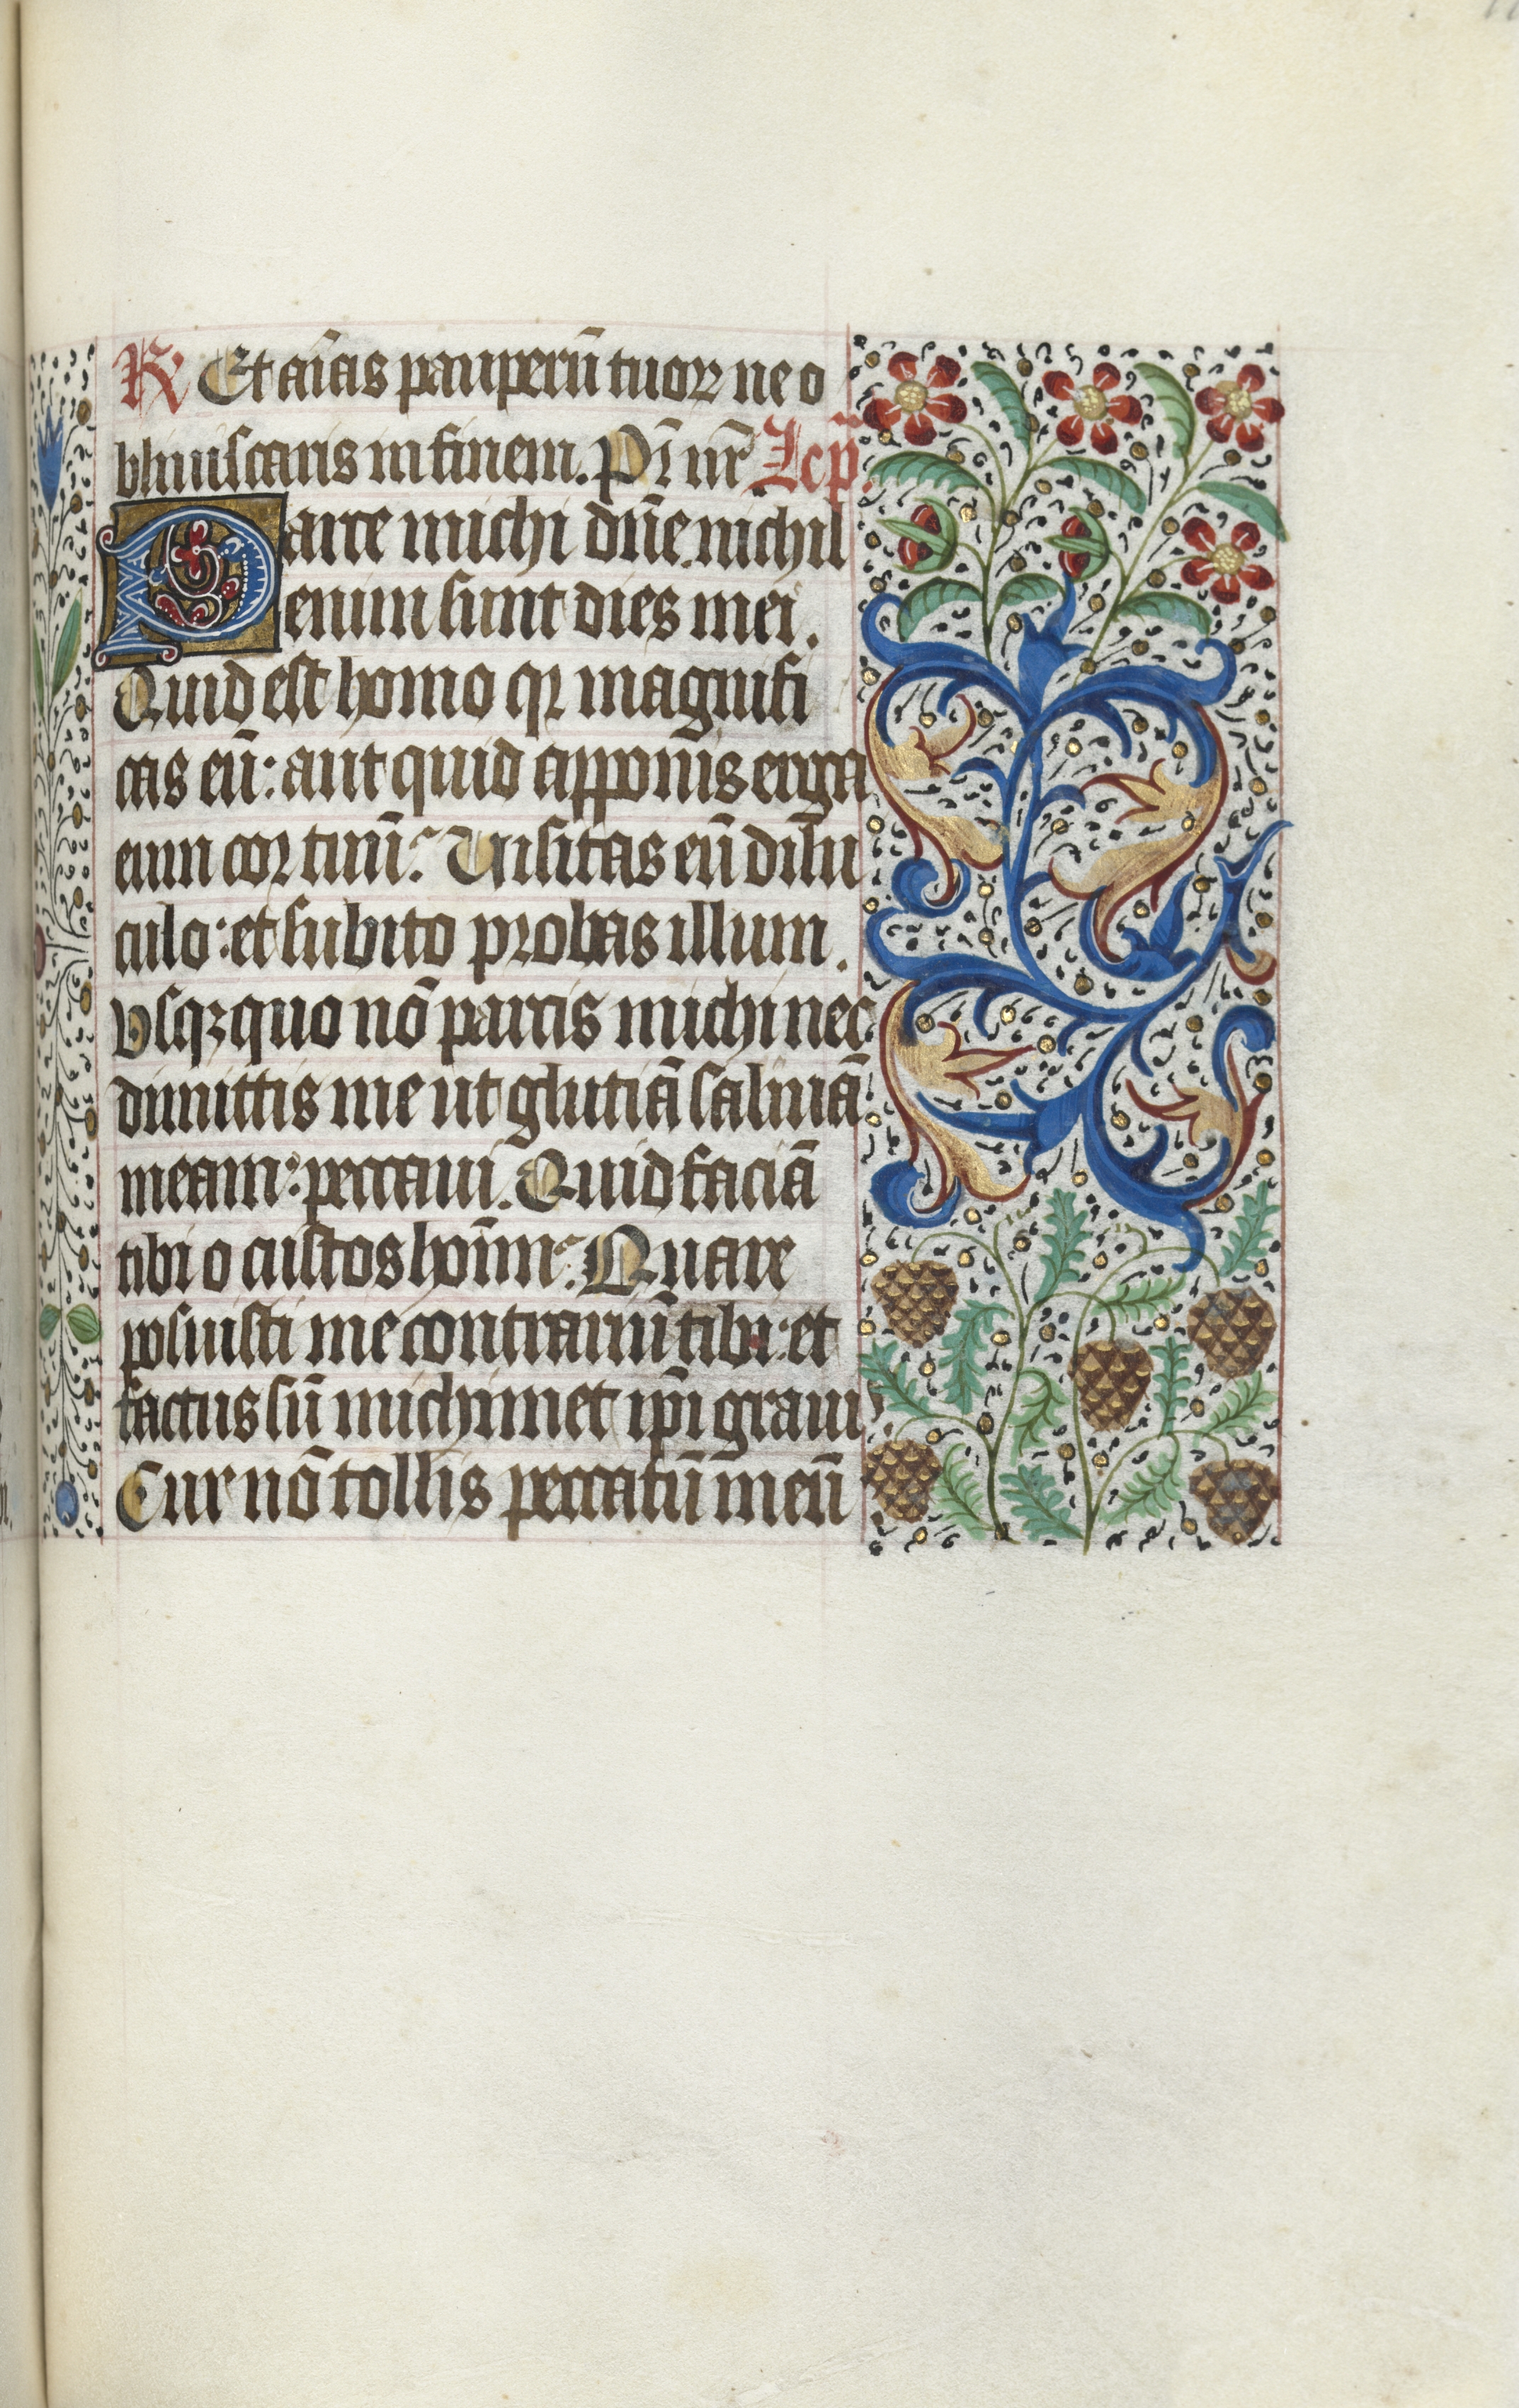 R Et aīas pauperū tuoꝝ ne o
bliuiscaris in finem. Pr̄ nr̄ Lcp̄.
Parce michi dn̄e. nichil
enim sunt dies mei.
Quid est homo qꝛ magnifi
cas eū: aut quid apponis erga
eum cor tuū? Visitas eū dilu
culo: et subito probas illum.
Vsqꝫquo nō parcis michi nec
dimittis me ut glutiā saliuā
meam: peccaui. Quid faciā
tibi o custos hoīm? Quare
posuisti me contrariū tibi: et
factus sū michimet ip̄i grauis
Cur nō tollis peccatū meū